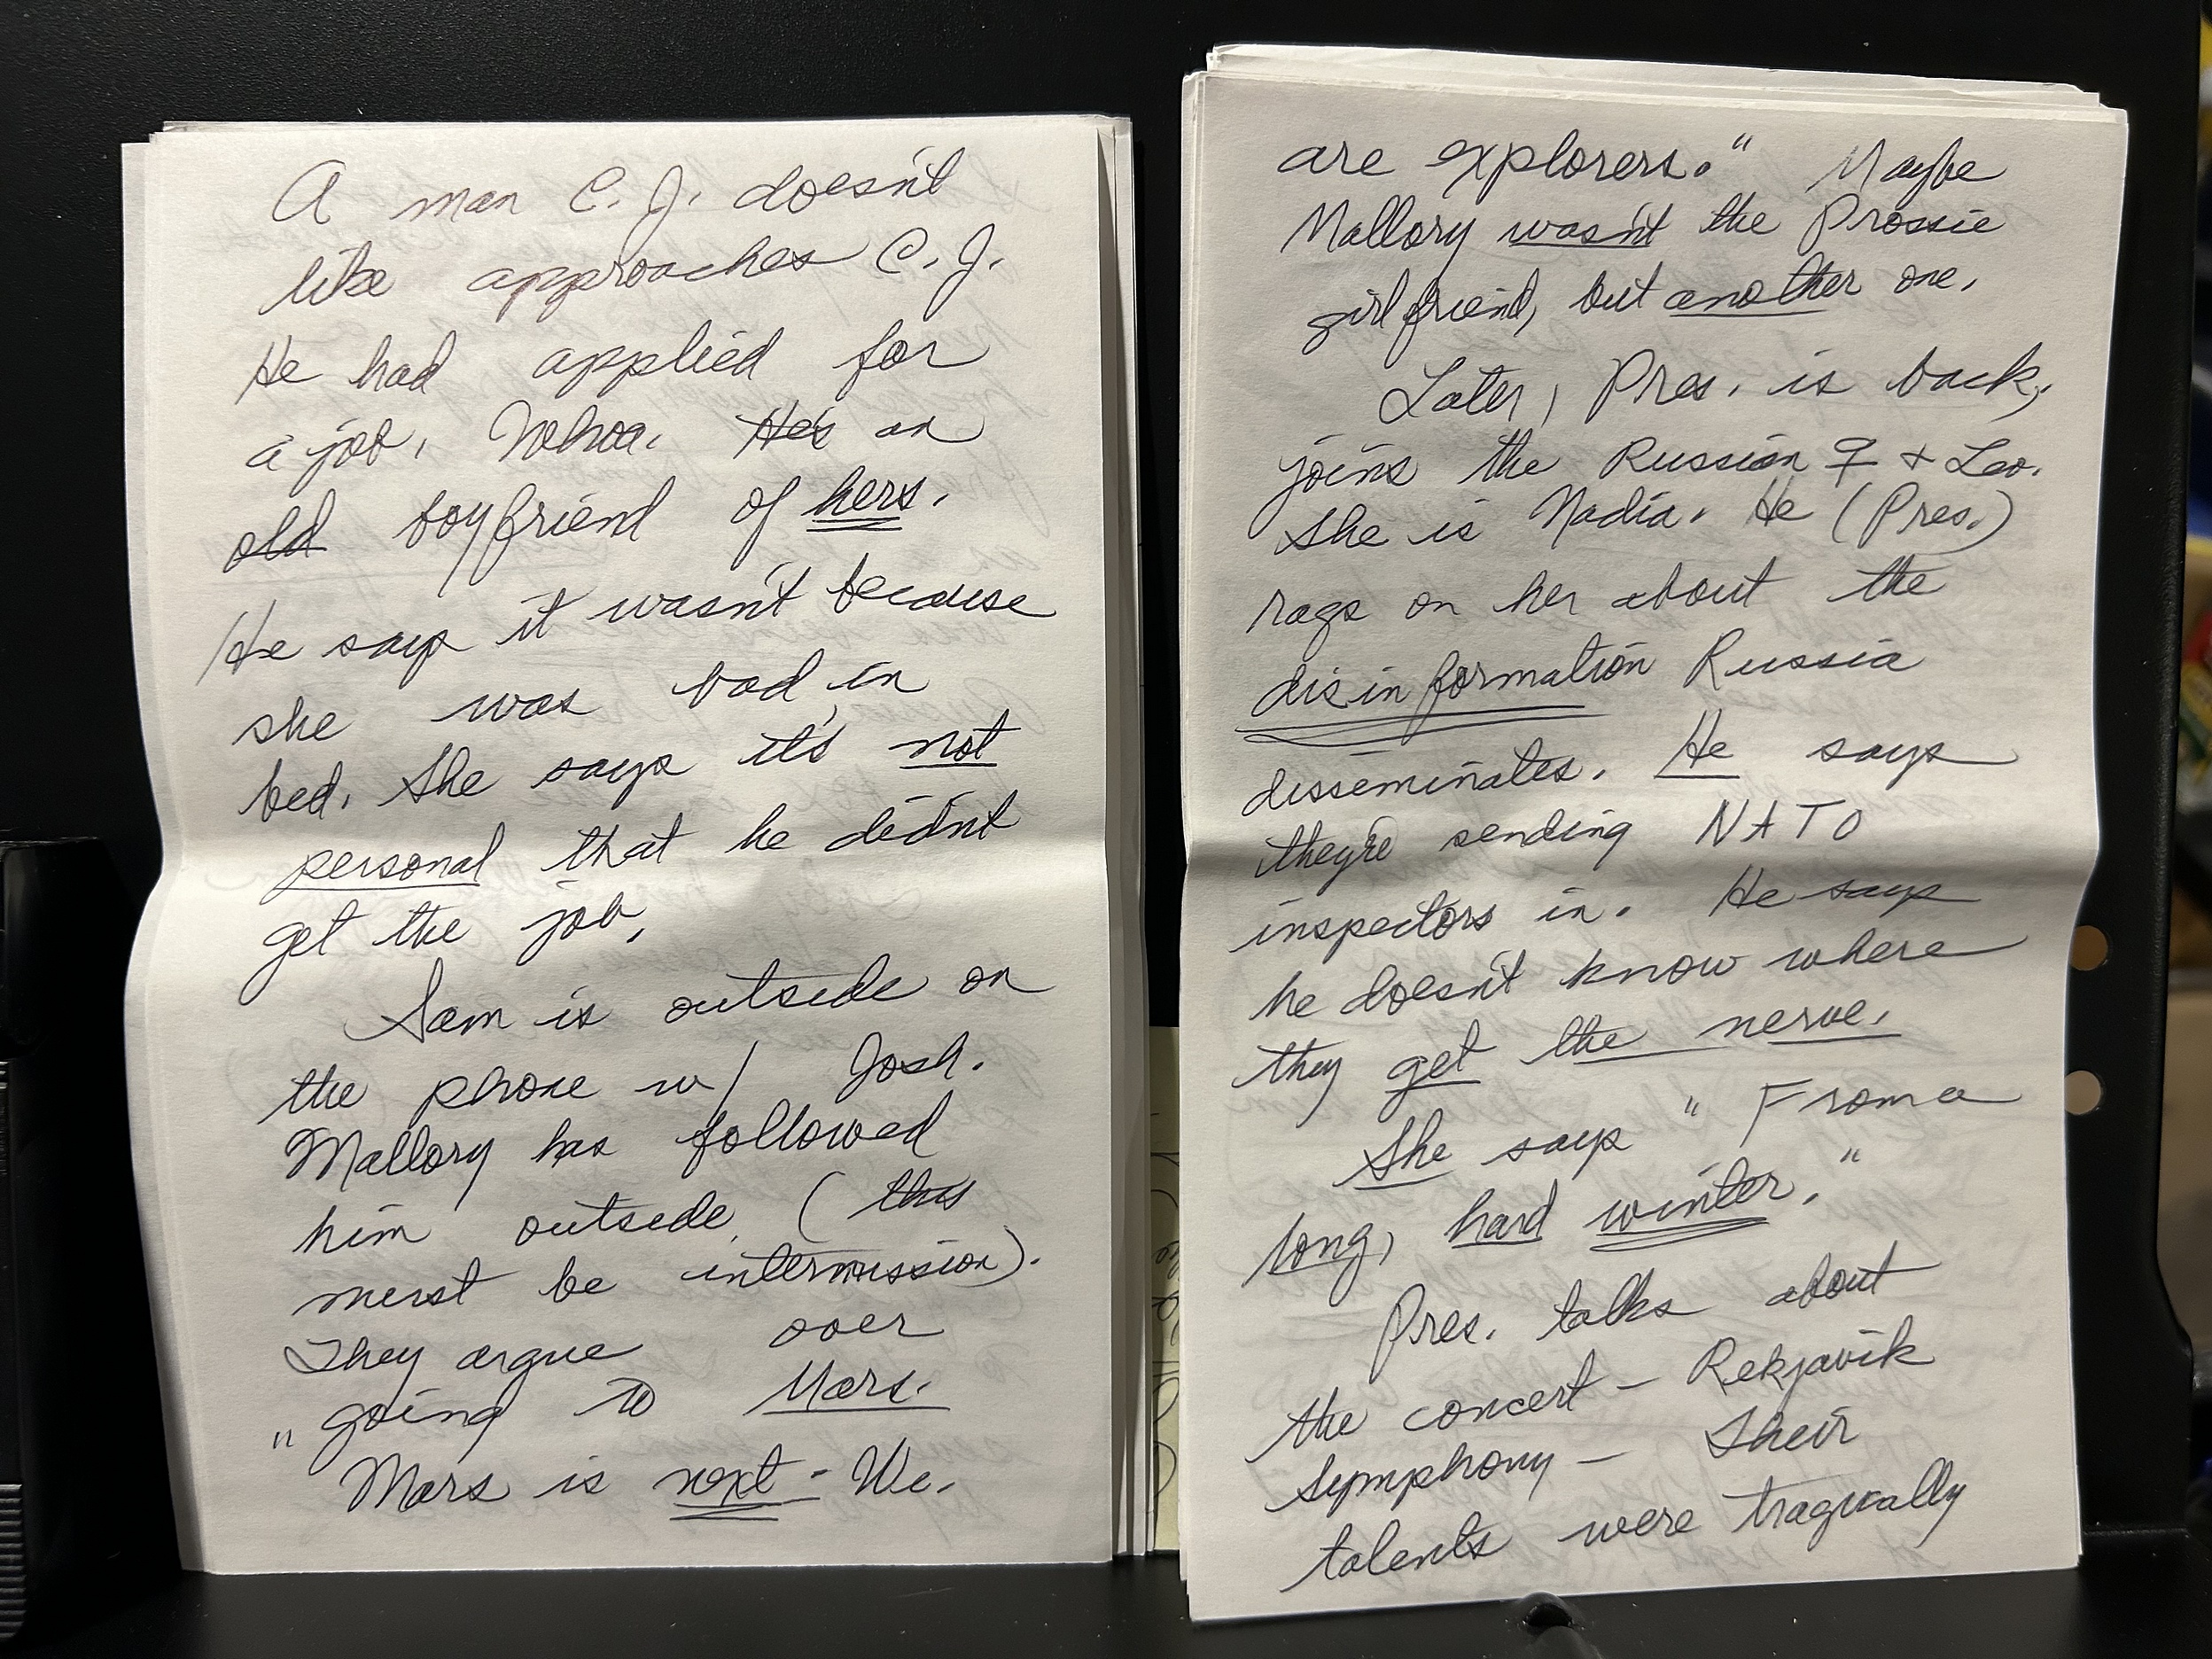 A man C.J. doesn't
like approaches C.J.
He had applied for
a job. Whoa. He's an
old boyfriend of hers.
He says it wasn't because
she was bad in
bed. She says it's not
personal that he didn't
get the job.
Sam is outside on
the phone w/ Josh.
Mallory has followed
him outside. (this
must be intermission).
They argue over
"going to Mars.
Mars is next - We.
are explorers." Maybe
Mallory wasn't the Prossie
girlfriend, but another one.
Later, Pres. is back,
joins the Russian ♀ + Leo.
She is Nadia. He (Pres.)
rags on her about the
disinformation Russia
disseminates. He says
they're sending NATO
inspectors in. He says
he doesn't know where
they get the nerve.
She says " From a
long, hard winter."
Pres. talks about
the concert - Rekjavik
Symphony - Their
talents were tragically